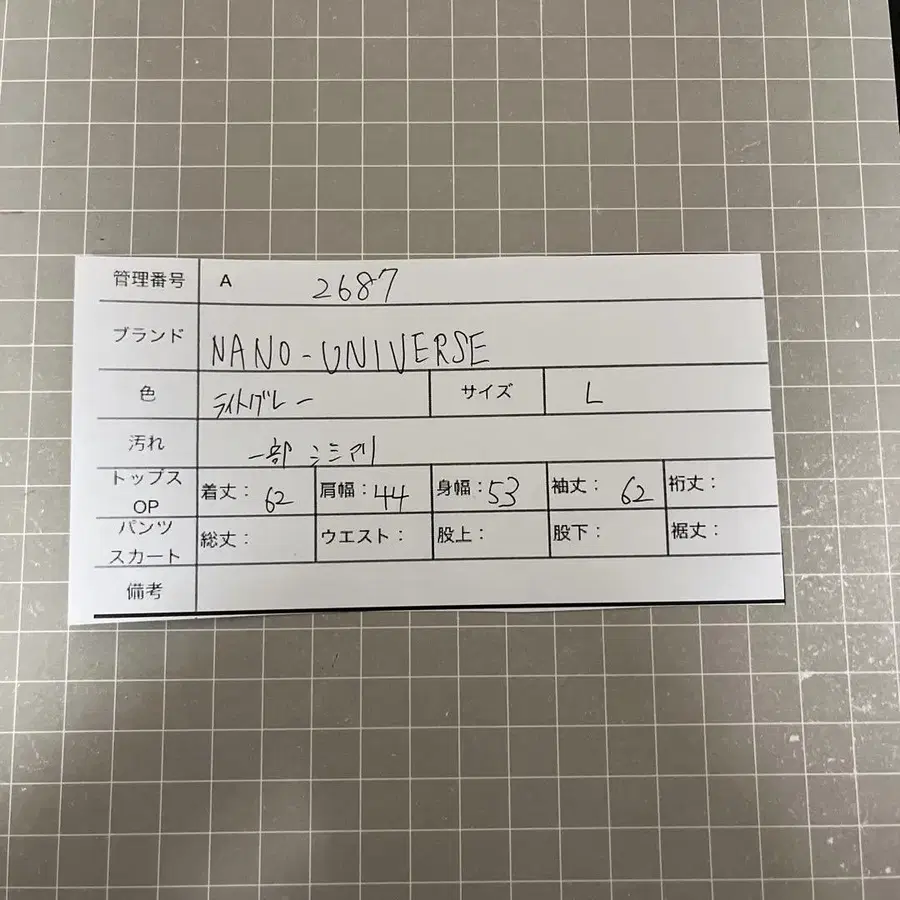 管理番号 A 2687
ブランド NANO-UNIVERSE
色 ライトグレー サイズ L
汚れ 一部シミアリ
トップス OP 着丈: 62 肩幅: 44 身幅: 53 袖丈: 62 裄丈:
パンツ スカート 総丈: ウエスト: 股上: 股下: 裾丈:
備考